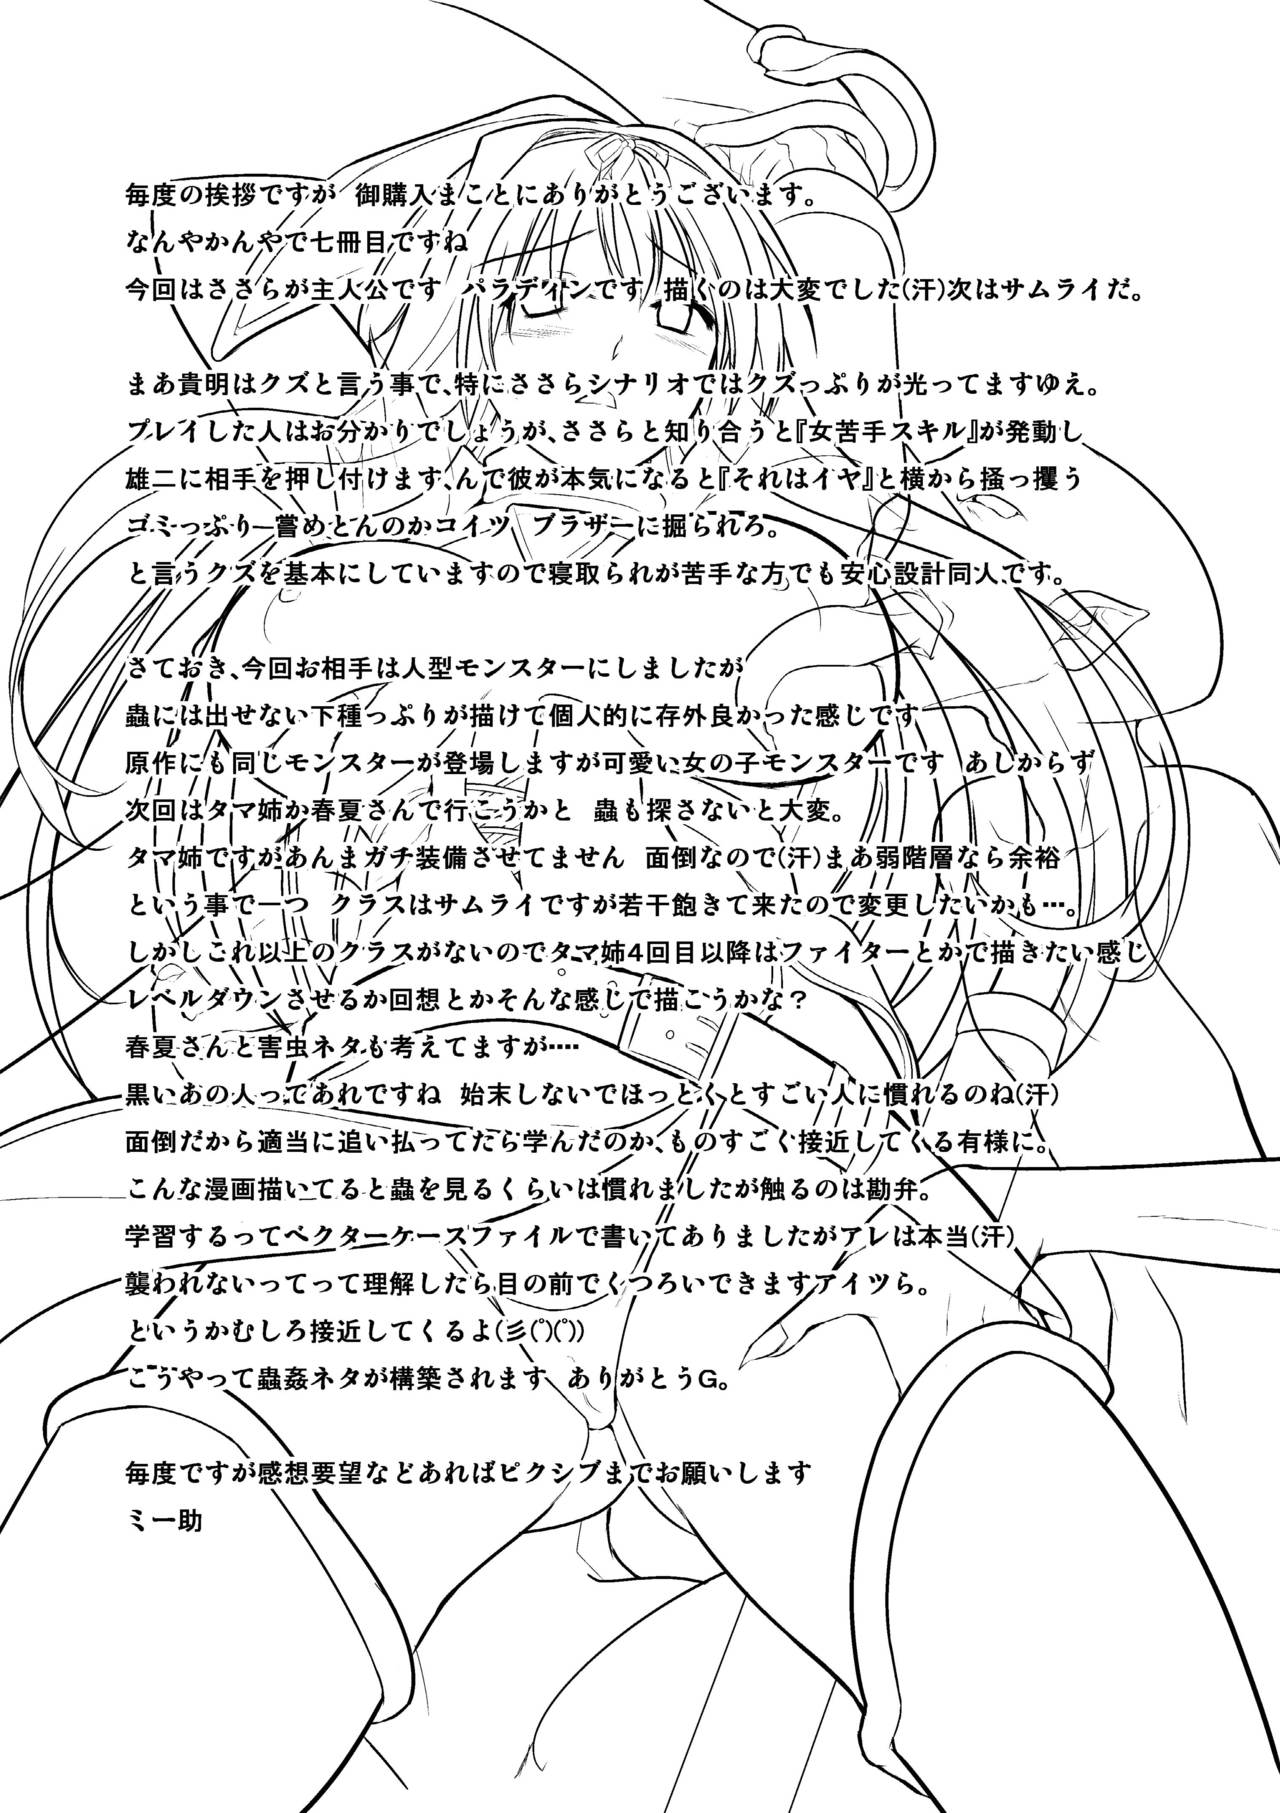 毎度の挨拶ですが　御購入まことにありがとうございます。
なんやかんやで七冊目ですね
今回はささらが主人公です　パラディンです　描くのは大変でした(汗)次はサムライだ。
まあ貴明はクズと言う事で、特にささらシナリオではクズっぷりが光ってますゆえ。
プレイした人はお分かりでしょうが、ささらと知り合うと『女苦手スキル』が発動し
雄二に相手を押し付けます、んで彼が本気になると『それはイヤ』と横から掻っ攫う
ゴミっぷり－嘗めとんのかコイツ　ブラザーに掘られろ。
と言うクズを基本にしていますので寝取られが苦手な方でも安心設計同人です。
さておき、今回お相手は人型モンスターにしましたが
蟲には出せない下種っぷりが描けて個人的に存外良かった感じです
原作にも同じモンスターが登場しますが可愛い女の子モンスターです　あしからず
次回はタマ姉か春夏さんで行こうかと　蟲も探さないと大変。
タマ姉ですがあんまガチ装備させてません　面倒なので(汗)まあ弱階層なら余裕
という事で一つ　クラスはサムライですが若干飽きて来たので変更したいかも…。
しかしこれ以上のクラスがないのでタマ姉4回目以降はファイターとかで描きたい感じ
レベルダウンさせるか回想とかそんな感じで描こうかな？
春夏さんと害虫ネタも考えてますが‥‥
黒いあの人ってあれですね　始末しないでほっとくとすごい人に慣れるのね(汗)
面倒だから適当に追い払ってたら学んだのか、ものすごく接近してくる有様に。
こんな漫画描いてると蟲を見るくらいは慣れましたが触るのは勘弁。
学習するってベクターケースファイルで書いてありましたがアレは本当(汗)
襲われないってって理解したら目の前でくつろいできますアイツら。
というかむしろ接近してくるよ(彡(ﾟ)(ﾟ))
こうやって蟲姦ネタが構築されます　ありがとうG。
毎度ですが感想要望などあればピクシブまでお願いします
ミー助